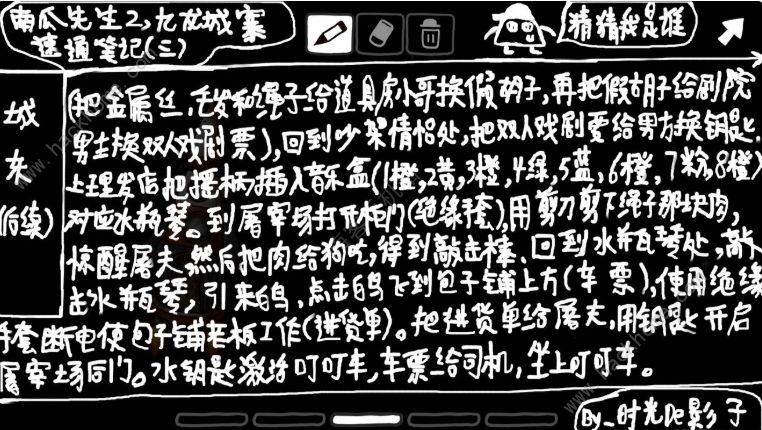 南瓜先生2,九龙城寨
速通笔记(三)
猜猜我是谁
城
东
(后续)
(把金属丝,毛发和绳子给道具房小哥换假胡子,再把假胡子给剧院
男士换双人戏剧票),回到吵架情侣处,把双人戏剧票给男方换钥匙.
上理发店把摇柄插入音乐盒(1橙,2黄,3橙,4绿,5蓝,6橙,7粉,8橙)
对应水瓶琴。到屠宰场打开柜门(绝缘手套),用剪刀剪下绳子那块肉,
惊醒屠夫,然后把肉给狗吃,得到敲击棒.回到水瓶琴处,敲
击水瓶琴,引来鸟,点击鸟飞到包子铺上方(车票),使用绝缘
手套断电使包子铺老板工作(进货单)。把进货单给屠夫,用钥匙开启
屠宰场后门。水钥匙激活叮叮车,车票给司机,坐上叮叮车。
By_时光De影子